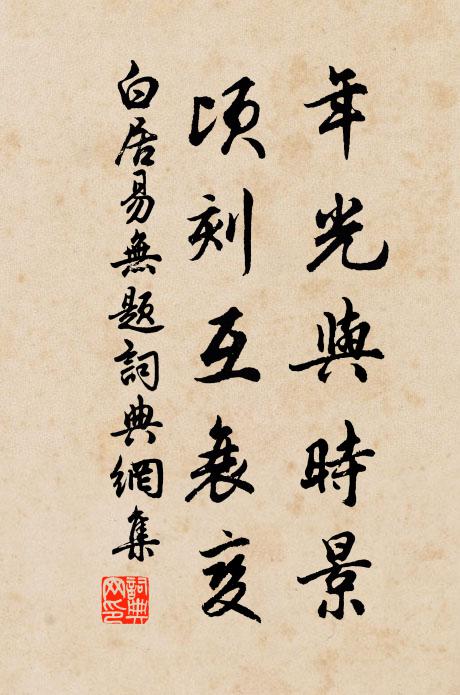 年光與時景
頃刻互衰變
白居易無題詞典網集
詞典網印